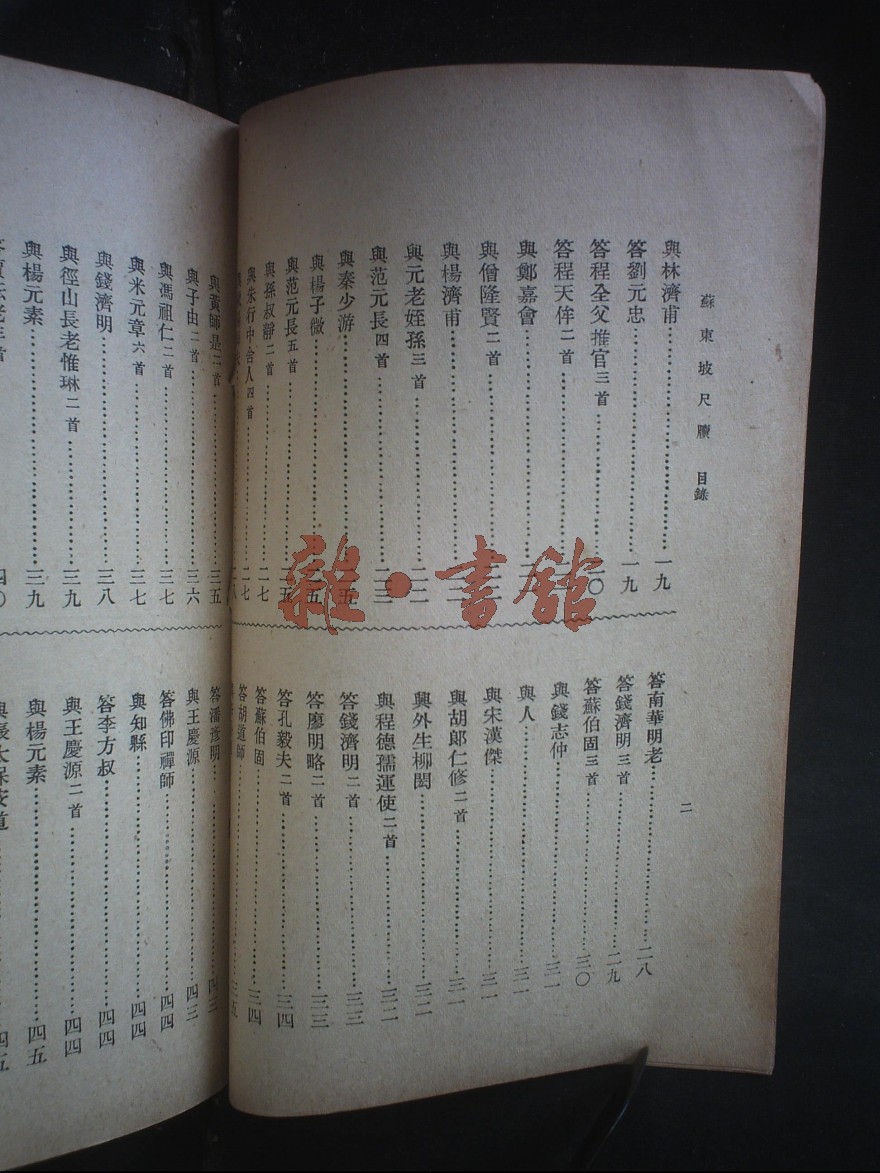 蘇東坡尺牘 目錄
與林濟甫……一九
答劉元忠……一九
答程全父推官三首……二〇
答程天侔二首
與鄭嘉會
與僧隆賢二首
與楊濟甫
與元老姪孫三首……二二
與范元長四首……二三
與秦少游……二五
與楊子微……二五
與范元長五首……二五
與孫叔靜二首……二七
與朱行中舍人四首……二七
答南華明老……二八
答錢濟明三首……二九
答蘇伯固三首……三〇
與錢志仲……三一
與人……三一
與宋漢傑……三一
與胡郎仁修二首……三一
與外生柳閎……三二
與程德孺運使二首……三二
答錢濟明二首……三三
答廖明略二首……三三
答孔毅夫二首……三四
答蘇伯固……三四
答胡道師……三五
二
與黃師是二首……三五
與子由二首……三六
與馮祖仁二首……三七
與米元章六首……三七
與錢濟明……三八
與徑山長老惟琳二首……三九
與楊元素……三九
四〇
答潘彥明……四三
與王慶源……四三
答佛印禪師……四四
與知縣……四四
答李方叔……四四
與王慶源二首……四四
與楊元素……四五
四五
雜·書館